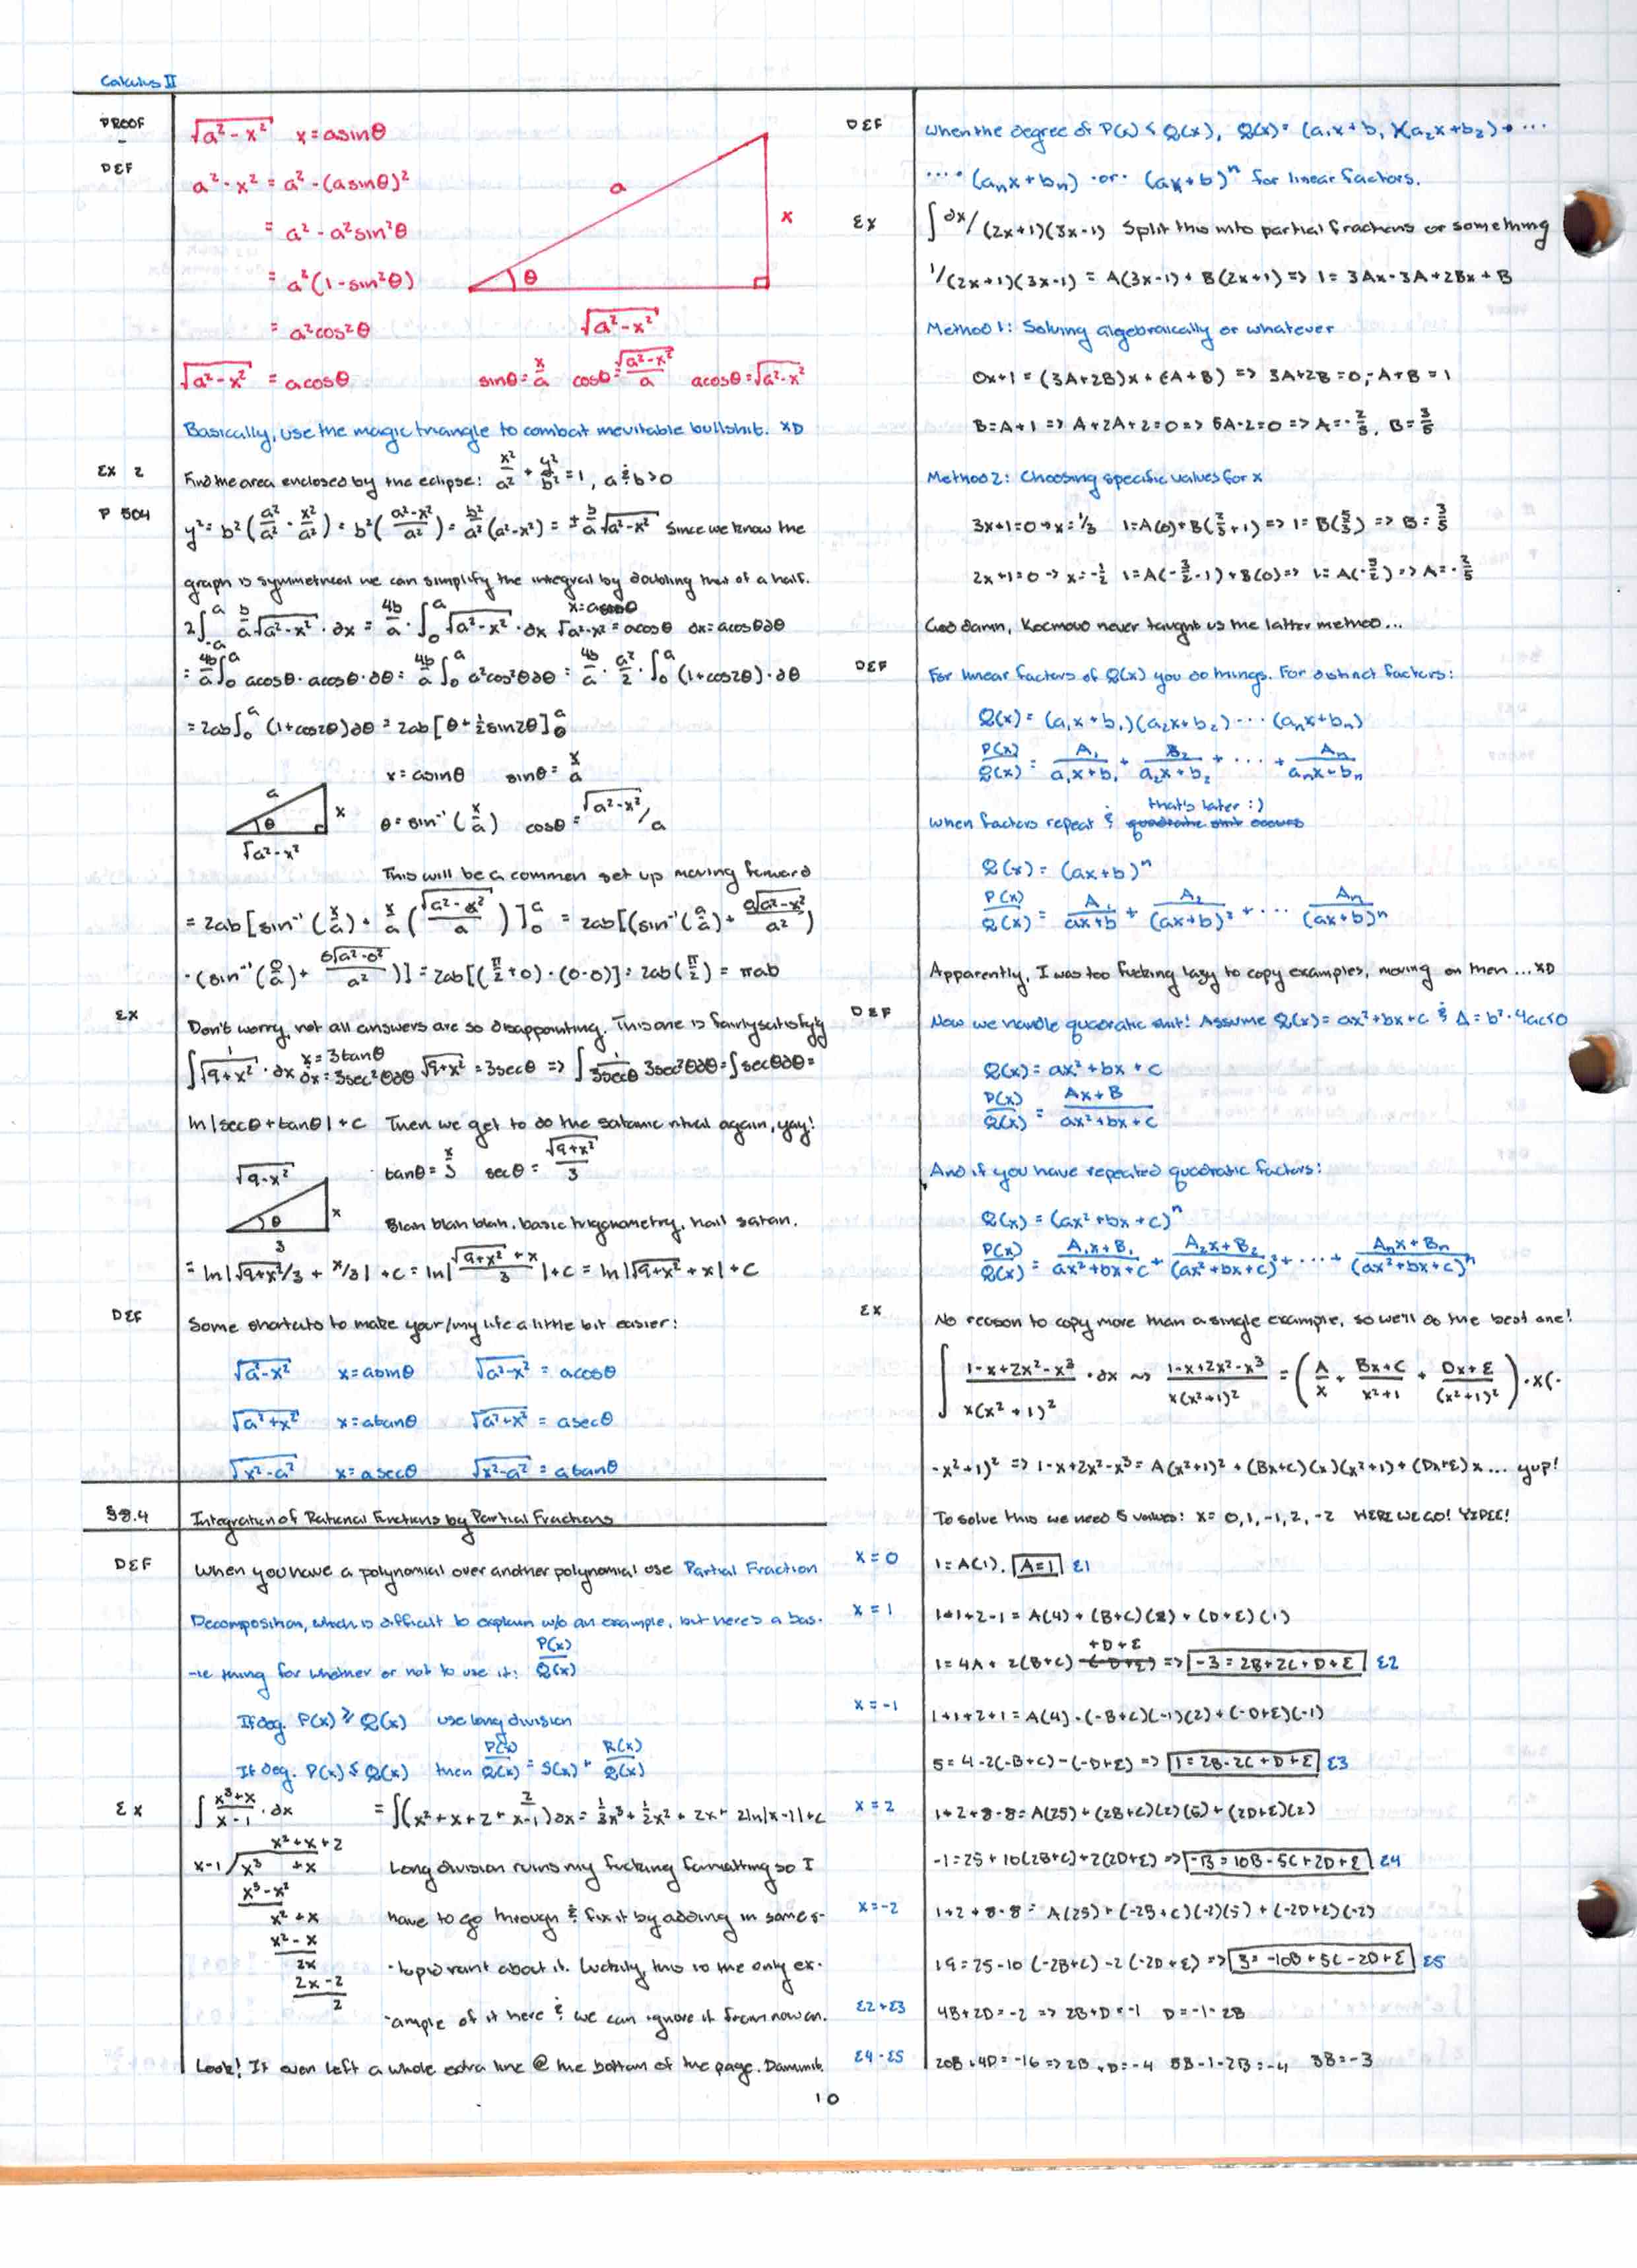 Calculus II
PROOF
-
DEF
√a²-x² x=asinθ
a²-x² = a²-(asinθ)²
= a²-a²sin²θ
= a²(1-sin²θ)
= a²cos²θ
√a²-x² = acosθ
a
x
θ
√a²-x²
sinθ=x/a cosθ=√a²-x²/a acosθ=√a²-x²
Basically, use the magic triangle to combat inevitable bullshit. XD
EX 2
P 504
Find the area enclosed by the eclipse: x²/a² + y²/b² = 1, a & b > 0
y² = b²(a²/a² - x²/a²) = b²(a²-x²/a²) = b²/a²(a²-x²) = ± b/a √a²-x² Since we know the
graph is symmetrical we can simplify the integral by doubling that of a half.
2∫-a^a b/a √a²-x² · ∂x = 4b/a · ∫0^a √a²-x² · ∂x x=asinθ √a²-x² = acosθ ∂x=acosθ∂θ
= 4b/a ∫0^a acosθ · acosθ · ∂θ = 4b/a ∫0^a a²cos²θ∂θ = 4b/a · a²/2 · ∫0^a (1+cos2θ) · ∂θ
= 2ab∫0^a (1+cos2θ)∂θ = 2ab[θ+½sin2θ]0^a
x=asinθ sinθ=x/a
a
x
θ
√a²-x²
θ=sin⁻¹(x/a) cosθ=√a²-x²/a
This will be a common set up moving forward
= 2ab[sin⁻¹(x/a) + x/a(√a²-x²/a)]0^a = 2ab[(sin⁻¹(a/a) + a√a²-x²/a²)
-(sin⁻¹(0/a) + 0√a²-0²/a²)] = 2ab[(π/2+0)-(0-0)] = 2ab(π/2) = πab
EX
Don't worry, not all answers are so disappointing. This one is fairly satisfyg
∫1/√9+x² · ∂x x=3tanθ ∂x=3sec²θ∂θ √9+x² = 3secθ => ∫1/3secθ 3sec²θ∂θ = ∫secθ∂θ =
ln|secθ+tanθ|+c Then we get to do the satanic ritual again, yay!
√9-x²
x
θ
3
tanθ=x/3 secθ=√9+x²/3
Blah blah blah, basic trigonometry, hail satan.
= ln|√9+x²/3 + x/3| + c = ln|√9+x² + x/3| + c = ln|√9+x² + x| + c
DEF
Some shortcuts to make your/my life a little bit easier:
√a²-x² x=asinθ √a²-x² = acosθ
√a²+x² x=atanθ √a²+x² = asecθ
√x²-a² x=asecθ √x²-a² = atanθ
§8.4
Integration of Rational Functions by Partial Fractions
DEF
When you have a polynomial over another polynomial use Partial Fraction
Decomposition, which is difficult to explain w/o an example, but here's a bas-
-ic thing for whether or not to use it: P(x)/Q(x)
If deg. P(x) ≥ Q(x) use long division
If deg. P(x) ≤ Q(x) then P(x)/Q(x) = S(x) + R(x)/Q(x)
EX
∫x³+x/x-1 · ∂x = ∫(x²+x+2+ 2/x-1)∂x = ⅓x³+½x²+2x+2ln|x-1|+c
x²+x+2
x-1/x³ +x
x³-x²
x²+x
x²-x
2x
2x-2
2
Long division ruins my fucking formatting so I
have to go through & fix it by adding in some s-
-tupid rant about it. Luckily, this is the only ex-
-ample of it here & we can ignore it from now on.
Look! It even left a whole extra line @ the bottom of the page. Dammit.
DEF
When the degree of P(x) < Q(x), Q(x) = (a₁x+b₁)(a₂x+b₂)· ···
···· (aₙx+bₙ) ·or· (ax+b)ⁿ for linear factors.
EX
∫∂x/(2x+1)(3x-1) Split this into partial fractions or something
1/(2x+1)(3x-1) = A(3x-1) + B(2x+1) => 1 = 3Ax-3A+2Bx+B
Method 1: Solving algebraically or whatever
0x+1 = (3A+2B)x + (-A+B) => 3A+2B=0, -A+B=1
B=A+1 => A+2A+2=0 => 5A-2=0 => A=-2/5, B=3/5
Method 2: Choosing specific values for x
3x+1=0 → x=⅓ 1=A(0)+B(⅔+1) => 1=B(5/3) => B=3/5
2x+1=0 → x=-½ 1=A(-3/2-1)+B(0) => 1=A(-5/2) => A=-2/5
God damn, Kocmovo never taught us the latter method...
DEF
For linear factors of Q(x) you do things. For distinct factors:
Q(x) = (a₁x+b₁)(a₂x+b₂)···(aₙx+bₙ)
P(x)/Q(x) = A₁/a₁x+b₁ + B₂/a₂x+b₂ + ··· + Aₙ/aₙx+bₙ
that's later :)
When factors repeat & quadratic shit occurs
Q(x) = (ax+b)ⁿ
P(x)/Q(x) = A₁/ax+b + A₂/(ax+b)² + ··· Aₙ/(ax+b)ⁿ
Apparently, I was too fucking lazy to copy examples, moving on then ...XD
DEF
Now we handle quadratic shit! Assume Q(x) = ax²+bx+c & Δ=b²-4ac≤0
Q(x) = ax²+bx+c
P(x)/Q(x) = Ax+B/ax²+bx+c
And if you have repeated quadratic factors:
Q(x) = (ax²+bx+c)ⁿ
P(x)/Q(x) = A₁x+B₁/ax²+bx+c + A₂x+B₂/(ax²+bx+c)² + ··· + Aₙx+Bₙ/(ax²+bx+c)ⁿ
EX
No reason to copy more than a single example, so we'll do the best one!
∫1-x+2x²-x³/x(x²+1)² · ∂x ~> 1-x+2x²-x³/x(x²+1)² = (A/x + Bx+C/x²+1 + Dx+E/(x²+1)²)·x(-
-x²+1)² => 1-x+2x²-x³ = A(x²+1)² + (Bx+C)(x)(x²+1) + (Dx+E)x... yup!
To solve this we need 5 values: x=0, 1, -1, 2, -2 HERE WE GO! YIPEE!
x=0
1=A(1). A=1 E1
x=1
1+1+2-1 = A(4) + (B+C)(2) + (D+E)(1)
+D+E
1=4A+2(B+C) => -3=2B+2C+D+E E2
x=-1
1+1+2+1 = A(4) + (-B+C)(-1)(2) + (-D+E)(-1)
5=4-2(-B+C)-(-D+E) => 1=2B-2C+D+E E3
x=2
1+2+8-8 = A(25) + (2B+C)(2)(5) + (2D+E)(2)
-1=25+10(2B+C)+2(2D+E) => -13=10B-5C+2D+E E4
x=-2
1+2+8-8 = A(25) + (-2B+C)(-2)(5) + (-2D+E)(-2)
19=25-10(-2B+C)-2(-2D+E) => 3=-10B+5C-2D+E E5
E2+E3
4B+2D=-2 => 2B+D=-1 D=-1-2B
E4-E5
20B+4D=-16 => 2B+D=-4 5B-1-2B=-4 3B=-3
10